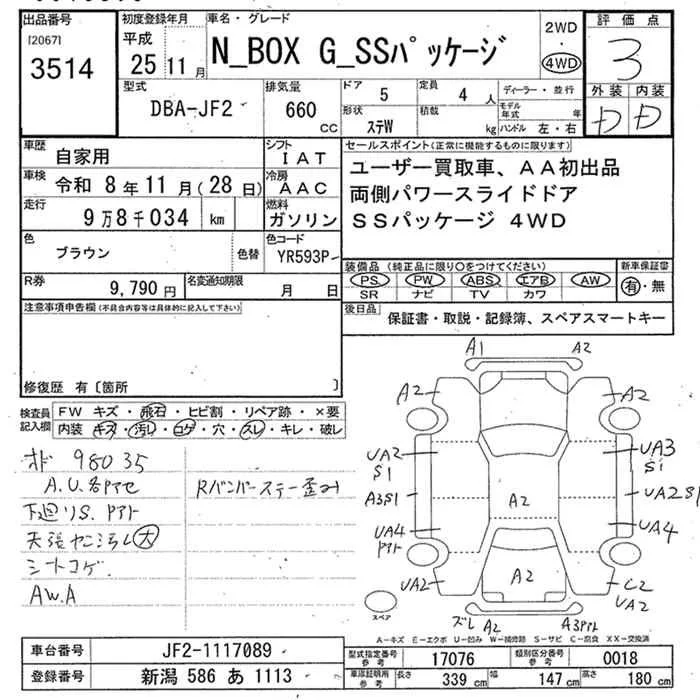 出品番号
[2067]
3514
初度登録年月
平成
25 11 月
車名・グレード
N_BOX G_SSパッケージ
2WD
・
4WD
評価点
3
外装 内装
D D
型式
DBA-JF2
排気量
660 cc
ドア 5
定員 4 人
形状 ステW
積載 kg
ディーラー・並行
モデル年式 年
ハンドル 左・右
車歴 自家用
シフト IAT
車検 令和 8年 11月(28日)
冷房 AAC
走行 9万8千034 km
燃料 ガソリン
色 ブラウン 色替
色コード YR593P-
R券 9,790 円
名変通知期限 月 日
セールスポイント(正常に機能するものに限ります)
ユーザー買取車、AA初出品
両側パワースライドドア
SSパッケージ 4WD
装備品(純正品に限り○をつけてください)
PS PW ABS エアB AW
SR ナビ TV カワ
新車保証書
有・無
後日品 保証書・取説・記録簿、スペアスマートキー
注意事項申告欄(不具合内容等は具体的に記入して下さい)
修復歴 有〔箇所 〕
検査員記入欄
FW キズ・飛石・ヒビ割・リペア跡・×要
内装 キズ・汚レ・コゲ・穴・スレ・キレ・破レ
オド 98035
A.U.各アセ
下廻りS.アト
天張ヤニ汚レ大
シートコゲ
AW.A
Rバンパーステー歪み
A1 A2
A2 A2
UA2 UA3
S1 S1
A3S1 UA2S1
A2
UA4 UA4
アト
UA2 A2 C2
UA2
スペア
ズレ A2 A3アト
A−キズ E−エクボ U−凹み W−補修跡 S−サビ C−腐食 XX−交換済
車台番号 JF2-1117089
登録番号 新潟 586 あ 1113
型式指定番号 参考 17076
類別区分番号 参考 0018
車庫証明用 参考 長さ 339 cm 幅 147 cm 高さ 180 cm